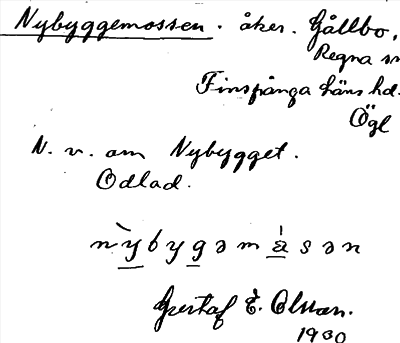 Nybyggemossen. åker. Gållbo,
Regna sn
Finspånga läns hd.
Ögl
N. v. om Nybygget.
Odlad.
nỳbygəmåsən
Gustaf E. Olsson.
1930